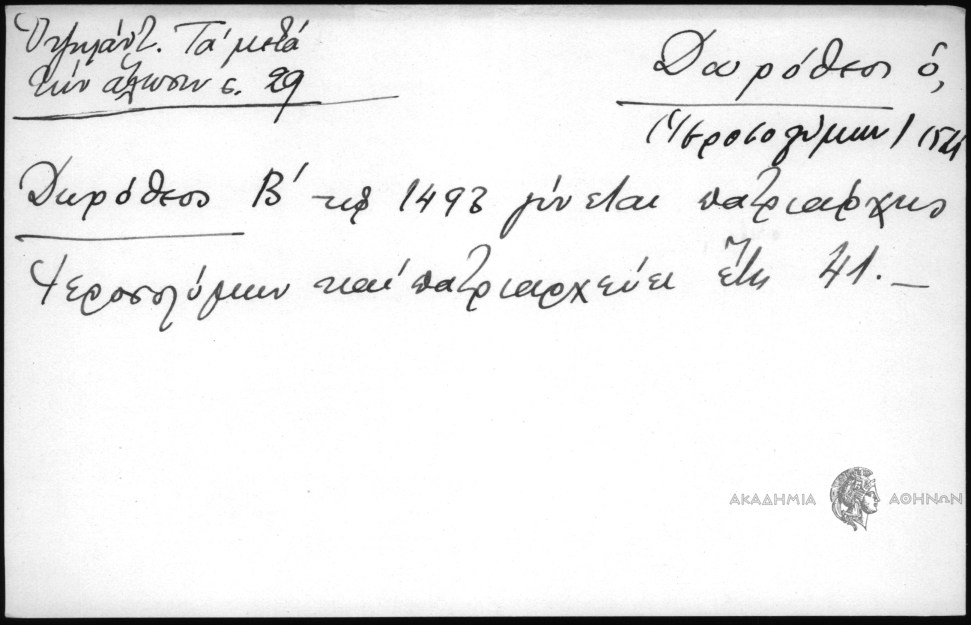 Ὑψηλάντ. Τά μετά
τήν ἅλωσιν σ. 29
Δωρόθεος ὁ,
(Ἱεροσολύμων)
Δωρόθεος Β΄ τῷ 1493 γίνεται πατριάρχης
Ἱεροσολύμων καί πατριαρχεύει ἔτη 41.—
ΑΚΑΔΗΜΙΑ ΑΘΗΝΩΝ